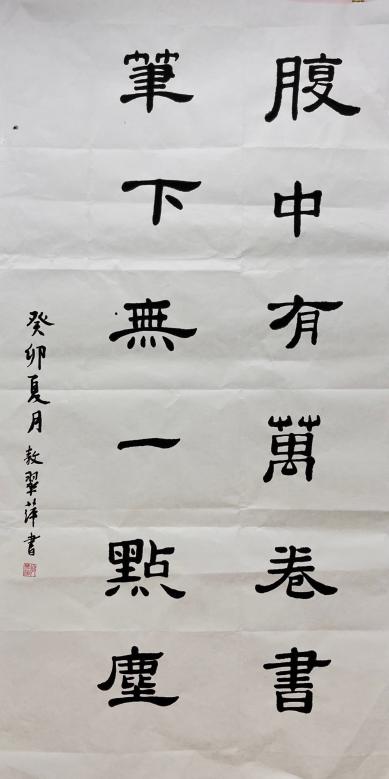 腹中有萬卷書
筆下無一點塵
癸卯夏月敖翠萍書